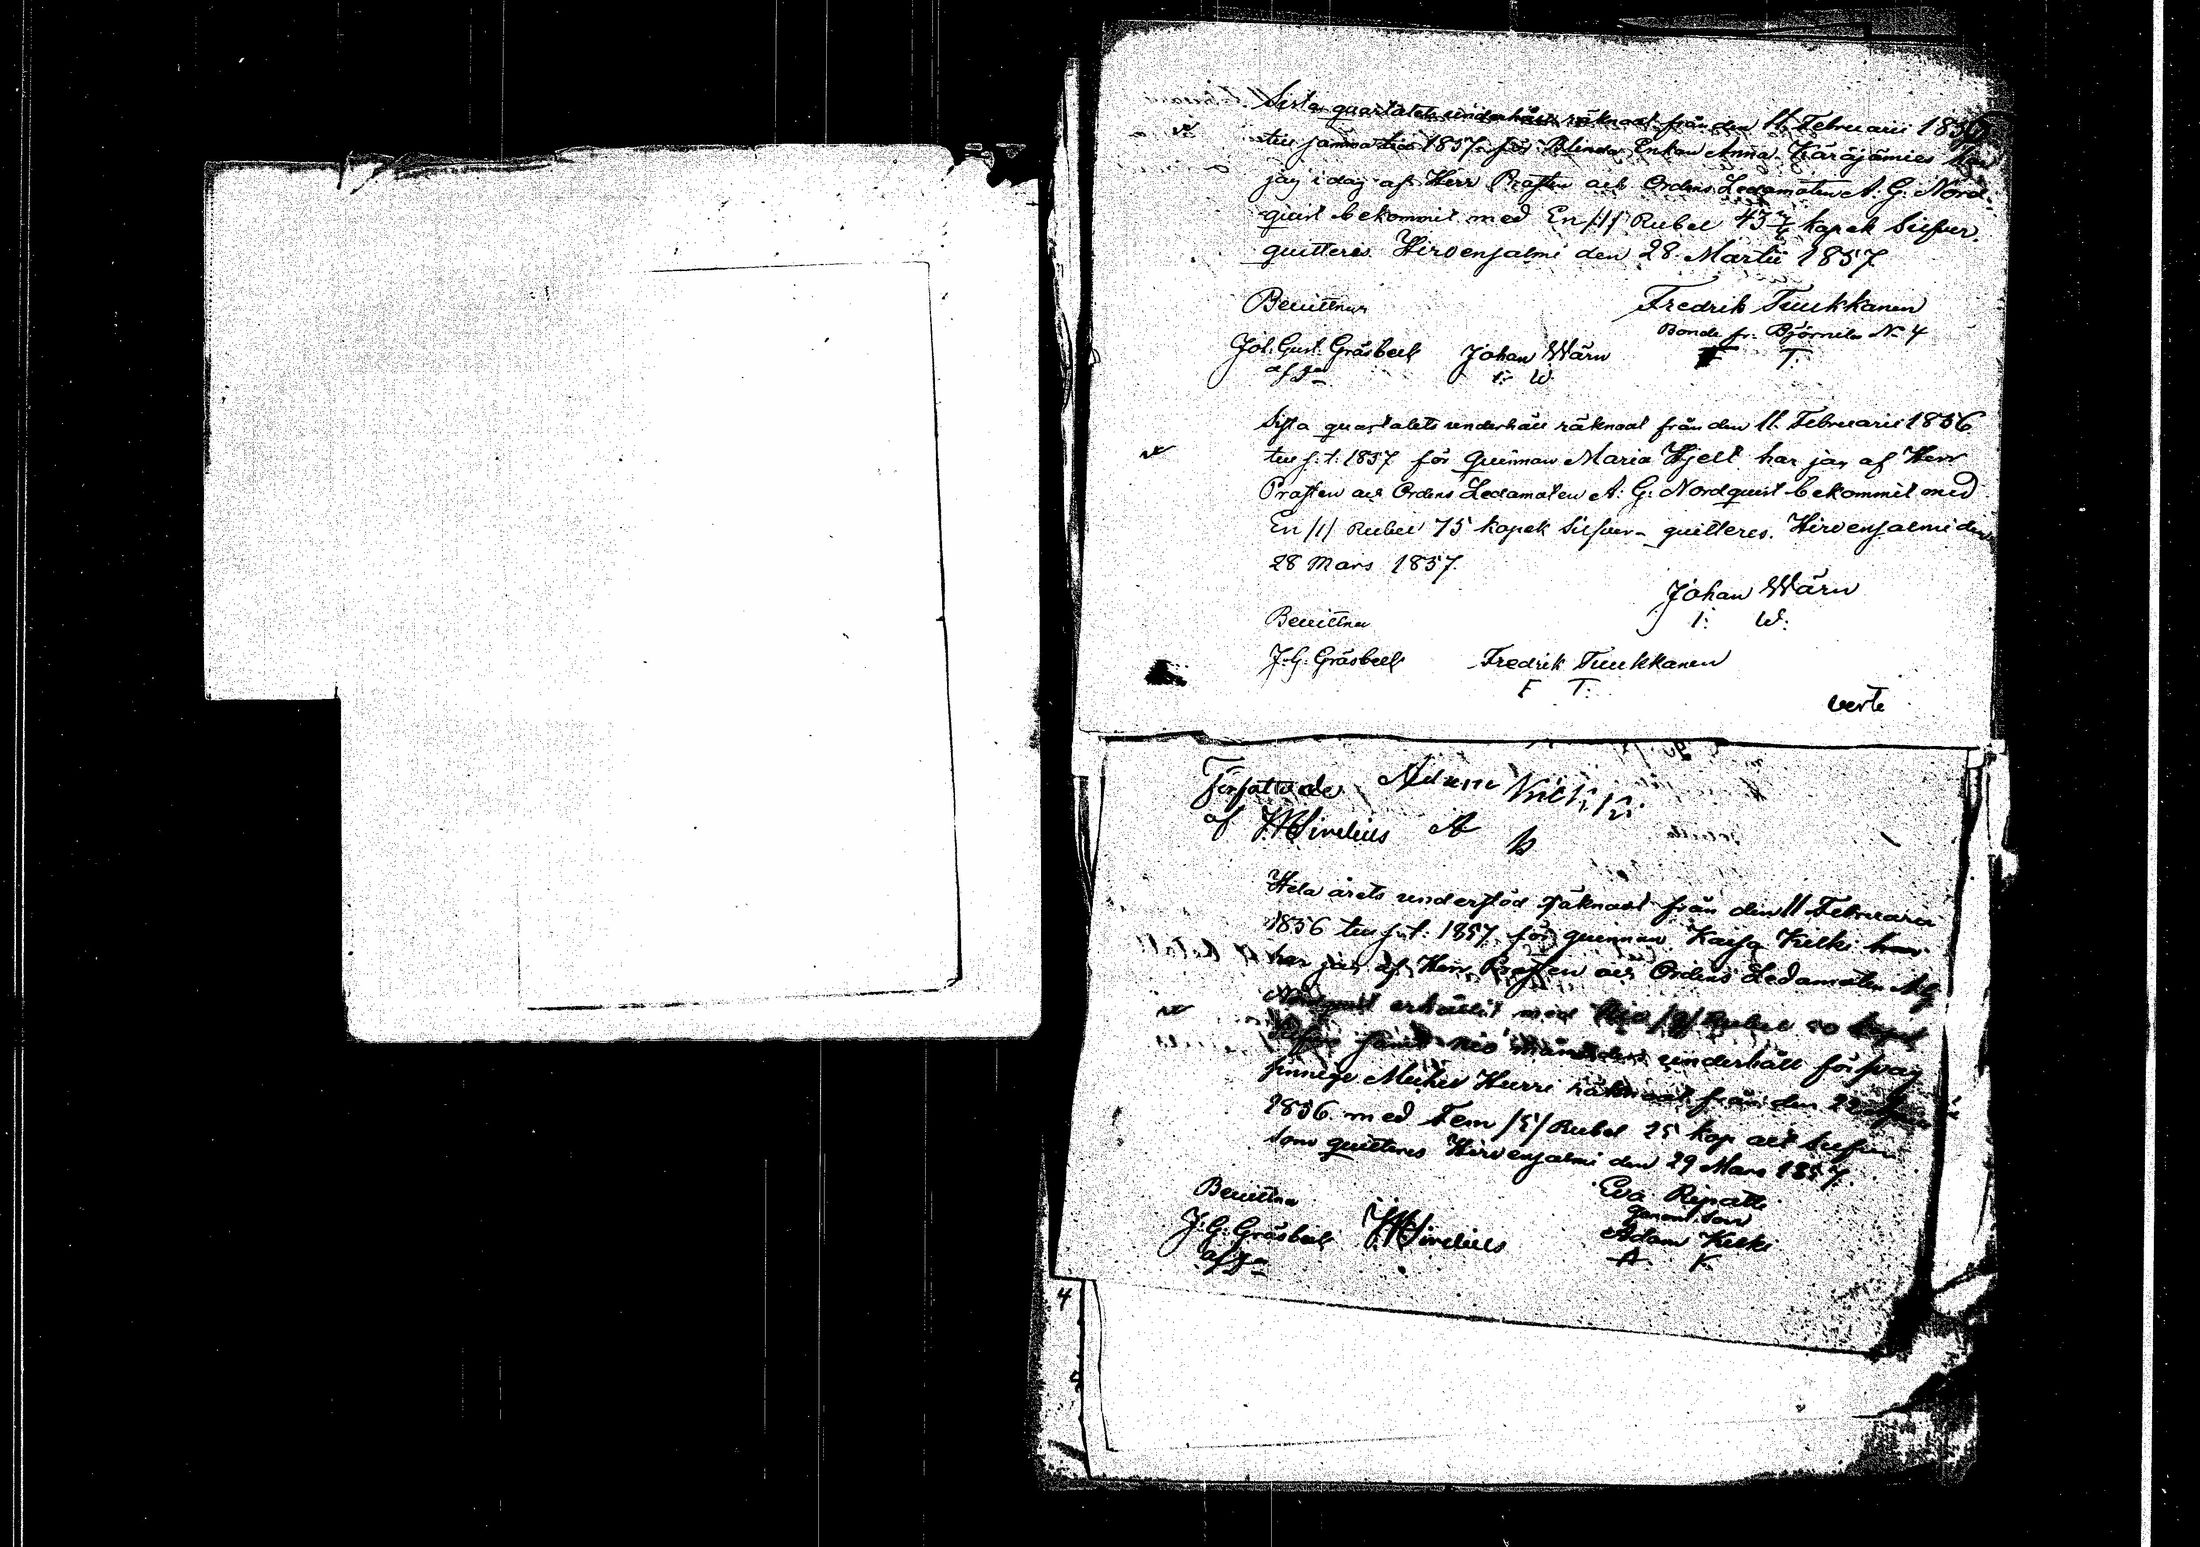 Sista quartalets underhåll räknadt från den 11 Februarii 1856
till samma tid 1857 för Blinda Enkan Anna Käräjämies har
jag i dag af Herr Prosten och Ordens Ledamoten A. G. Nord-
quist bekommit med En /1/ Rubel 43 3/4 kopek Silfver.
quitteres. Hirvensalmi den 28 Martii 1857
Bevittnar
Fredrik Tuukkanen
Bonde fr. Björnila No 4
Joh. Gust. Gråsbeck Johan Wärn
F T.
I: W.
Sista quartalets underhåll räknadt från den 11 Februarii 1856
till s. t. 1857 för Quinnan Maria Hjelt har jag af Herr
Prosten och Ordens Ledamoten A. G. Nordquist bekommit med
En /1/ Rubel 75 kopek Silfver - quitteres. Hirvensalmi den
28 Mars 1857.
Johan Wärn
I: W:
Bevittna
J. G. Gråsbeck Fredrik Tuukkanen
F T:
verte
Adam
af
A K
Hela årets understöd räknadt från den 11 Februarii
1856 till s. t. 1857 för quinnan Kaisa Kilki
har jag af Herr Prosten och Ordens Ledamoten A G
Nordquist erhållit med Nio /9/ Rubel 50 kopek
Silfver samt nio månaders underhåll för svag
sinnige Michel Hurri räknadt från den 22
1856 med Fem /5/ Rubel 25 kop allt Silfver
som quitteres Hirvensalmi den 29 Mars 1857.
Bevittna
Eva Ripatti
genom son
J: G: Gråsbeck
Adam Kilki
A K
4
4